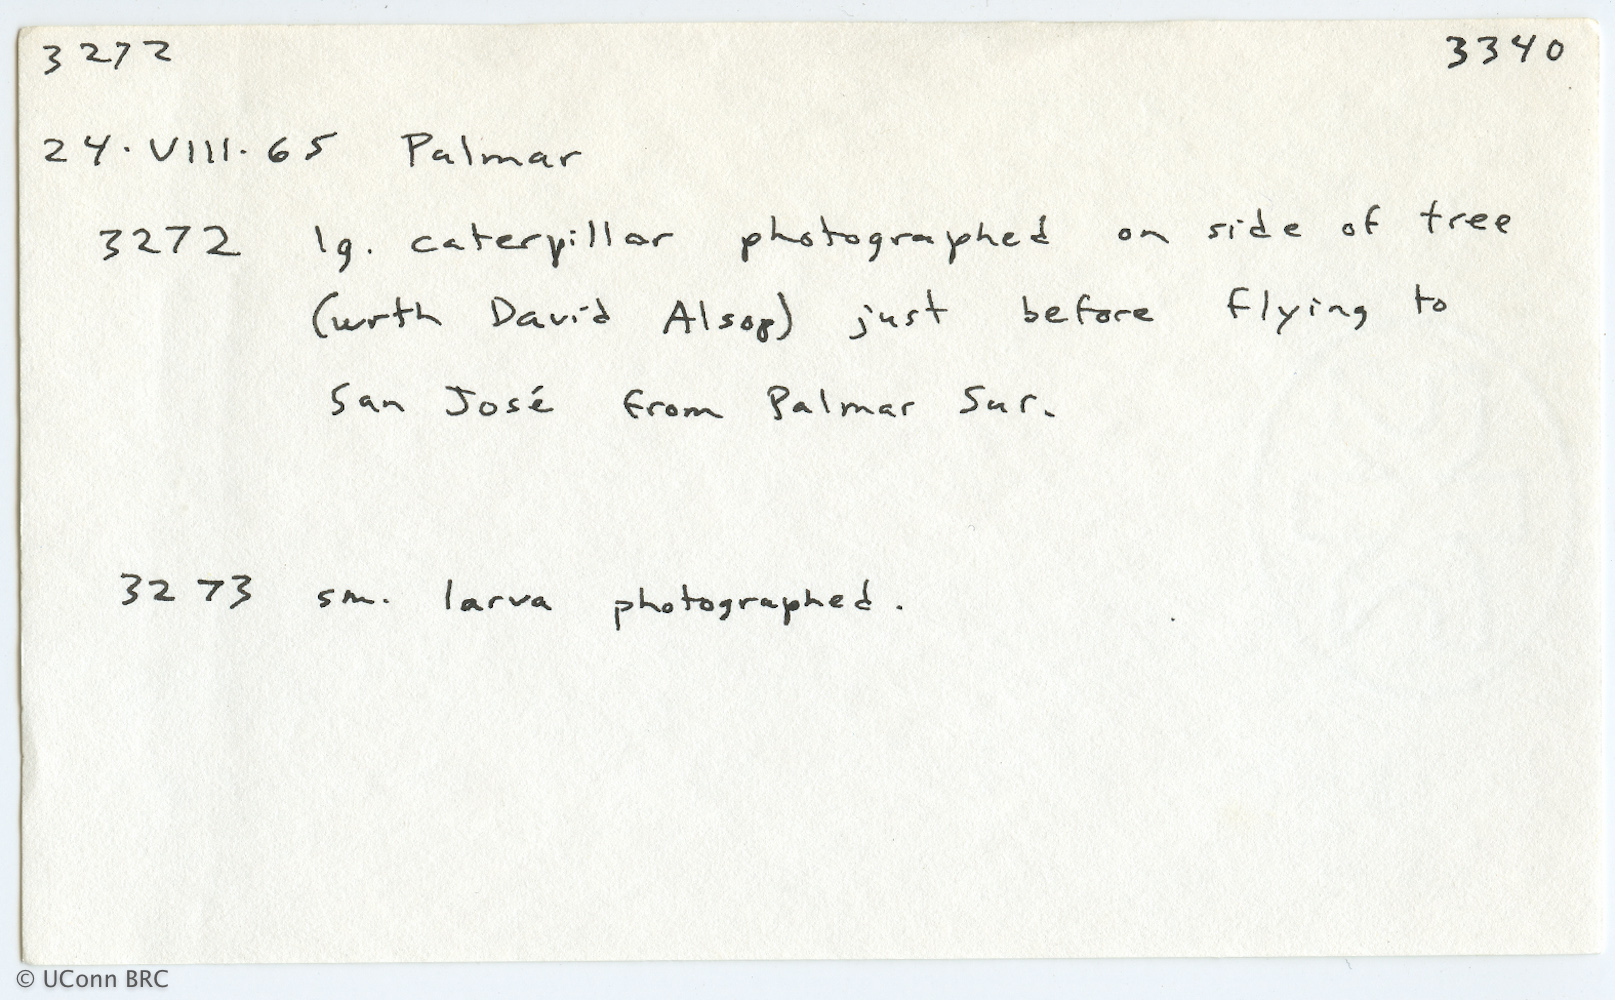 3272 3340
24·VIII·65 Palmar
3272 lg. caterpillar photographed on side of tree
(with David Alsop) just before flying to
San José from Palmar Sur.
3273 sm. larva photographed.
© UConn BRC